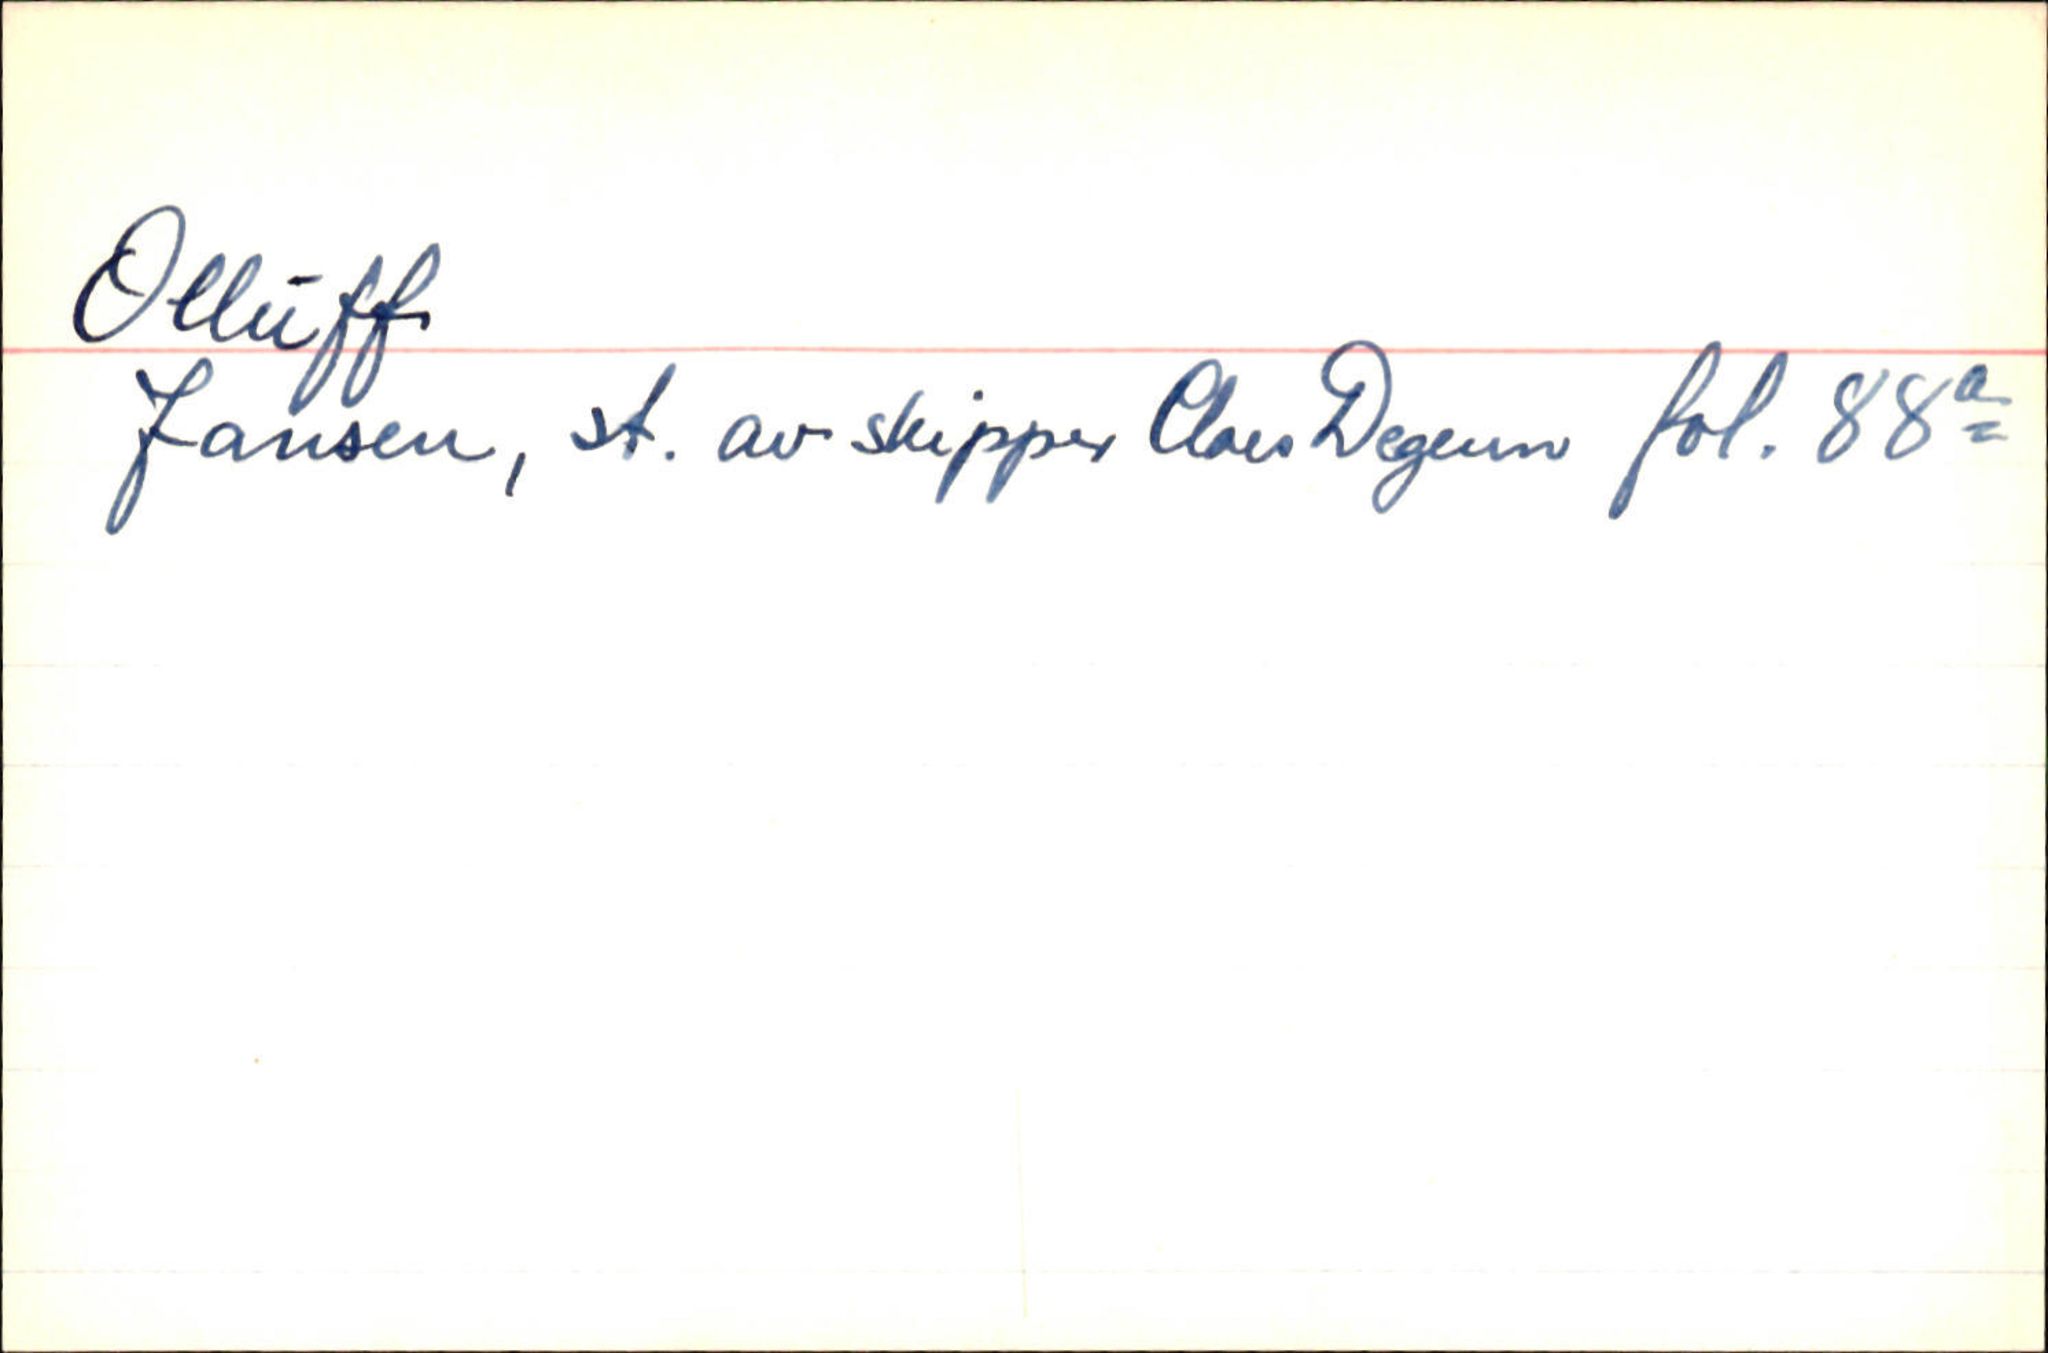 Ollūff
Jansen, st. av skipper Claes Degenn fol. 88a